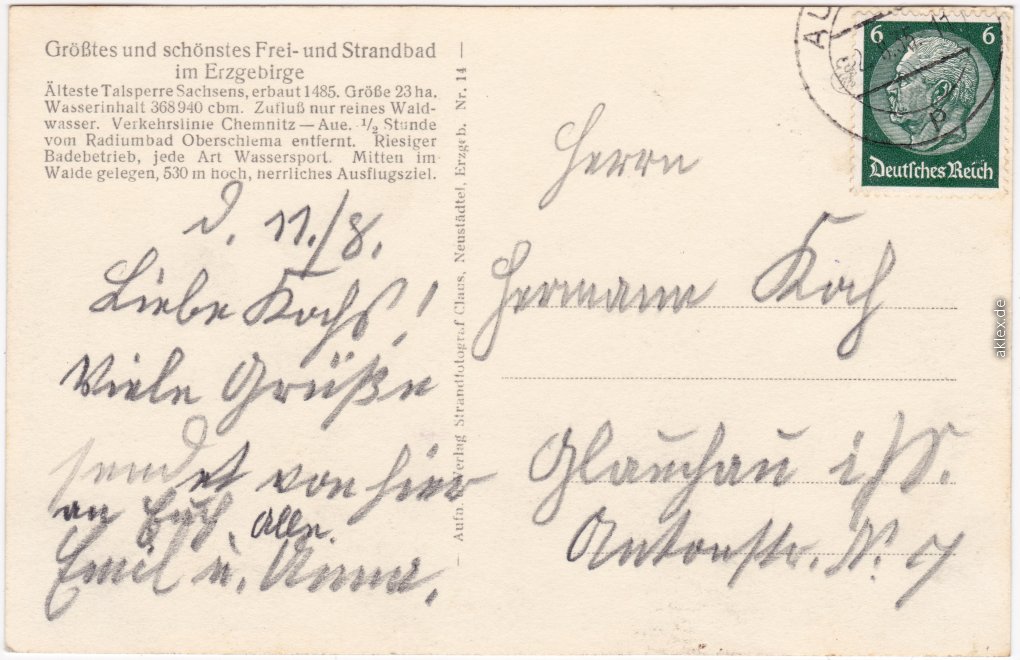 Größtes und schönstes Frei- und Strandbad
im Erzgebirge
Älteste Talsperre Sachsens, erbaut 1485. Größe 23 ha.
Wasserinhalt 368940 cbm. Zufluß nur reines Wald-
wasser. Verkehrslinie Chemnitz — Aue. ½ Stunde
vom Radiumbad Oberschlema entfernt. Riesiger
Badebetrieb, jede Art Wassersport. Mitten im
Walde gelegen, 530 m hoch, herrliches Ausflugsziel.
d. 11./8.
Liebe Kochs!
Viele Grüße
sendet von hier
an Euch Alle.
Emil u. Anna.
— Aufn. u. Verlag Strandfotograf Claus, Neustädtel, Erzgeb. Nr. 14 —
6 6
Deutsches Reich
Herrn
Hermann Koch
Glauchau i/S.
Antonstr. N. 7
aklex.de